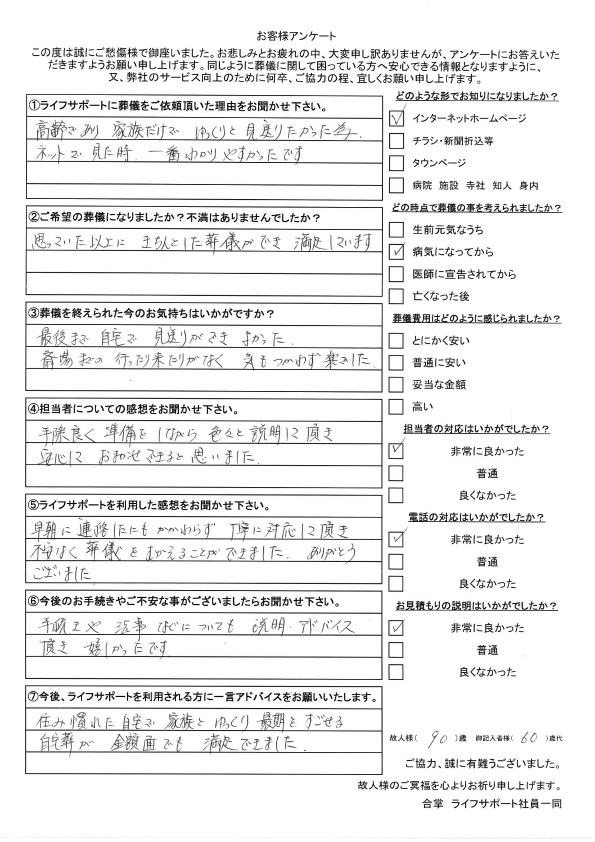 お客様アンケート
この度は誠にご愁傷様で御座いました。お悲しみとお疲れの中、大変申し訳ありませんが、アンケートにお答えいた
だきますようお願い申し上げます。同じように葬儀に関して困っている方へ安心できる情報となりますように、
又、弊社のサービス向上のために何卒、ご協力の程、宜しくお願い申し上げます。
①ライフサポートに葬儀をご依頼頂いた理由をお聞かせ下さい。
高齢であり 家族だけで ゆっくりと 見送りたかった為、
ネットで 見た時、一番わかりやすかったです
②ご希望の葬儀になりましたか？不満はありませんでしたか？
思っていた以上に きちんとした葬儀ができ 満足しています
③葬儀を終えられた今のお気持ちはいかがですか？
最後まで 自宅で 見送りができ よかった.
斎場までの 行ったり来たりがなく 気もつかわず楽でした.
④担当者についての感想をお聞かせ下さい。
手際良く 準備をしながら 色々と説明して頂き
安心して おまかせできると思いました.
⑤ライフサポートを利用した感想をお聞かせ下さい。
早朝に連絡したにもかかわらず 丁寧に対応して頂き
不安なく 葬儀をむかえることができました. ありがとう
ございました
⑥今後のお手続きやご不安な事がございましたらお聞かせ下さい。
手続きや 法事などについても 説明・アドバイス
頂き 嬉しかったです.
⑦今後、ライフサポートを利用される方に一言アドバイスをお願いいたします。
住み慣れた自宅で 家族とゆっくり 最期をすごせる
自宅葬が 金額面でも 満足できました.
どのような形でお知りになりましたか？
インターネットホームページ
チラシ・新聞折込等
タウンページ
病院 施設 寺社 知人 身内
どの時点で葬儀の事を考えられましたか？
生前元気なうち
病気になってから
医師に宣告されてから
亡くなった後
葬儀費用はどのように感じられましたか？
とにかく安い
普通に安い
妥当な金額
高い
担当者の対応はいかがでしたか？
非常に良かった
普通
良くなかった
電話の対応はいかがでしたか？
非常に良かった
普通
良くなかった
お見積もりの説明はいかがでしたか？
非常に良かった
普通
良くなかった
故人様( 90 )歳 御記入者様( 60 )歳代
ご協力、誠に有難うございました。
故人様のご冥福を心よりお祈り申し上げます。
合掌 ライフサポート社員一同